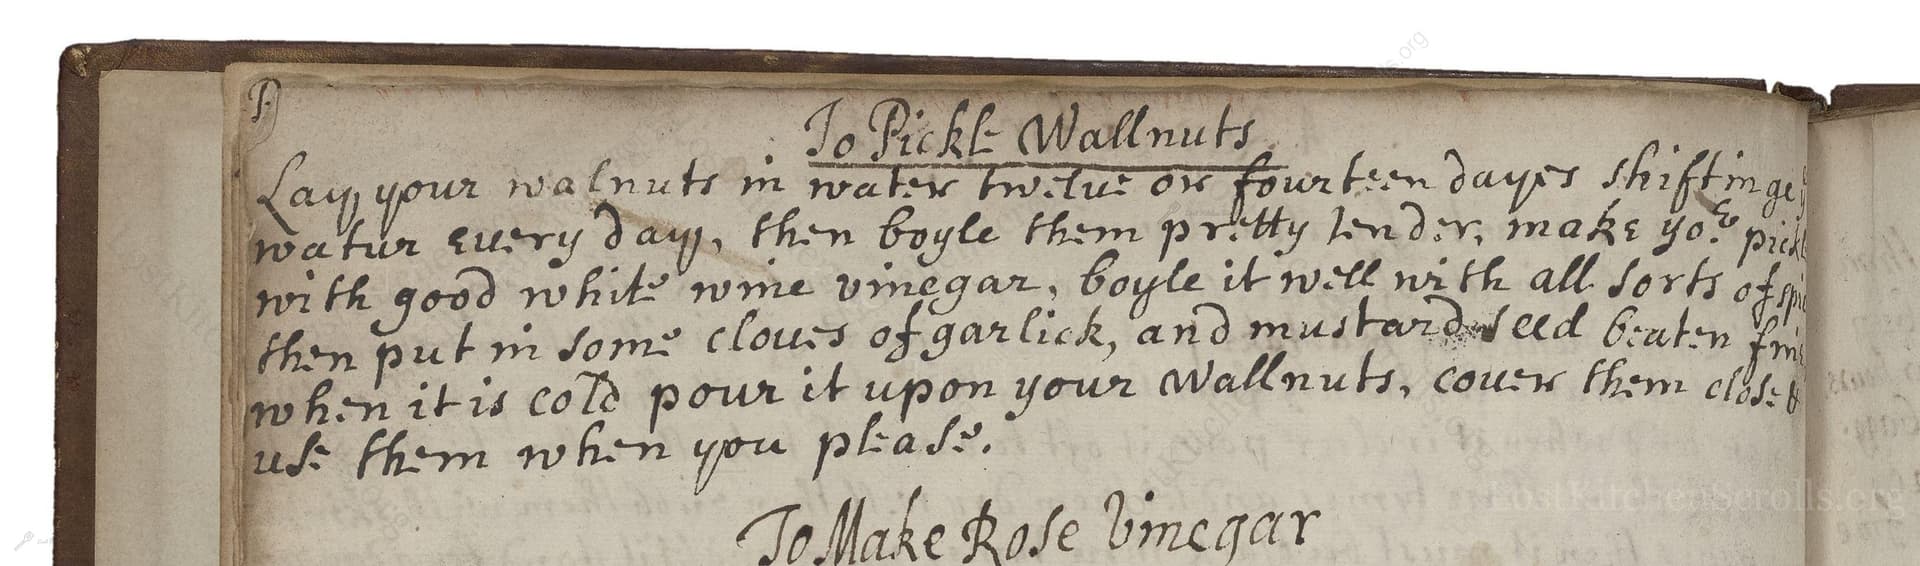 P.
To Pickle Wallnuts
Lay your walnuts in water twelue or fourteen dayes shiftinge
watur euery day, then boyle them pretty tender, make yor pickl
with good white wine vinegar, boyle it well with all sorts of spic
then put in some cloues of garlick, and mustard seed beaten fine
when it is cold pour it upon your Wallnuts, couer them close &
use them when you please.
To Make Rose Vinegar
LostKitchenScrolls.org